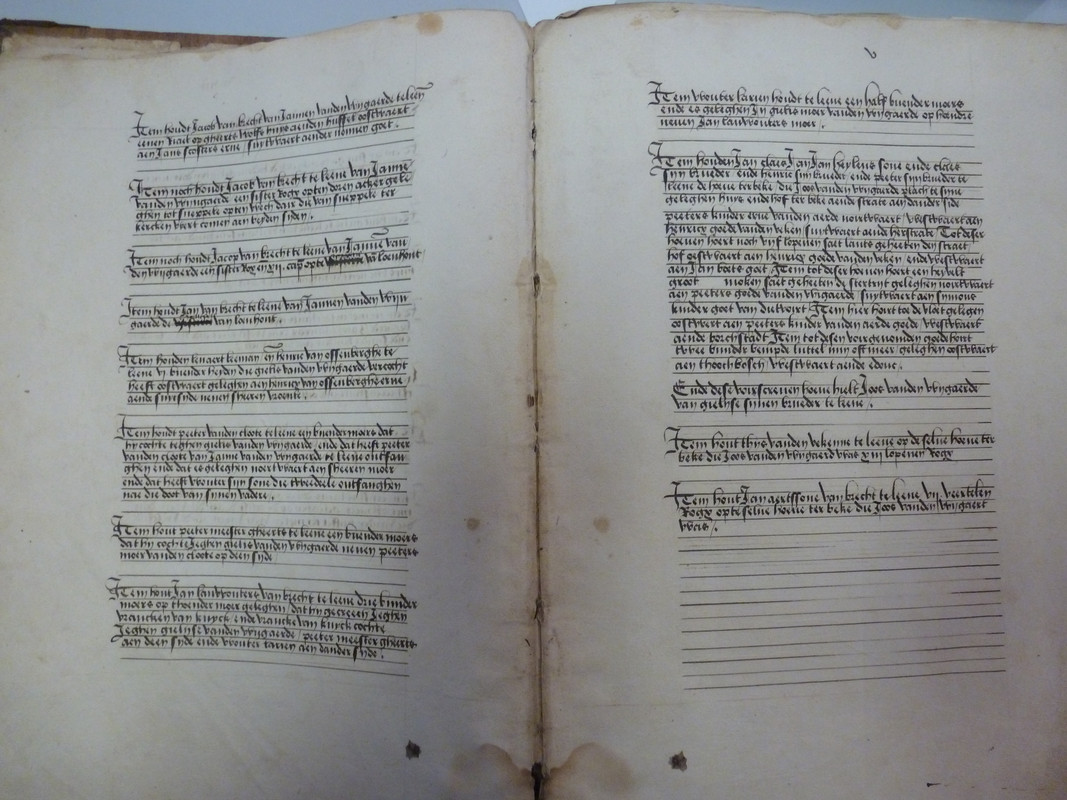 Item houdt Jacob van brecht van Jannen vanden wijngaerde te leen
eenen vaet op gheerts huys aenden oostwaert
aen Jans erve suytwaert aender nonnen goet.
Item noch houdt Jacob van brecht te leene van Janne
vanden wijngaerde een sister rogx opten doren acker gele
ghen tot opten wech daer die van ter
kercken wert comen aen beyden syden.
Item noch houdt Jacop van brecht te leene van Jannen van
den wijngaerde een sister rogx en xij cap opte van loenhout
Item houdt Jan van brecht te leene van Jannen vanden wijn
gaerde de van loenhout.
Item houden lenaert leeman en henric van ossenberghe te
leene vj buender heyden die gielis vanden wijngaerde vercocht
heeft oostwaert geleghen aen henricx van ossenberghe erve
aende suytsyde neven sheeren vroente.
Item houdt peeter vanden cloote te leene een buender moers dat
hy cochte teghen gielis vanden wijngaerde ende dat heeft peeter
vanden cloote van Janne vanden wijngaerde te leene ontfan
ghen ende dat es geleghen noortwaert aen sheeren moer
ende dat heeft wouter syn sone die tweedeele ontfanghen
nae die doot van synen vadere.
Item hout peeter meester gheerts te leene een buender moers
dat hy cocht Jeghen gielis vanden wijngaerde neven peeters
moer vanden cloote op deen syde
Item hout Jan lauwouters van brecht te leene drie buender
moers op thoender moer geleghen dat hy Jeghen
vrancken van kuyck ende vrancke van kuyck cochte
Jeghen gielijse vanden wijngaerde peeter meester gheerts
aen deen syde ende wouter aen dander syde.
v
Item wouter houdt te leene een half buender moers
ende es geleghen In gielis moer vanden wijngaerde op
neven Jan lauwouters moer.
Item houden Jan claes Jan Jan heylens sone ende claes
syn brueder ende henric syn brueder ende peeter syn brueder te
leene de hoeve ter beke die Joos vanden wijngaerde plach te syne
geleghen huys ende hof ter beke aende strate aen dander side
peeters kinder erve vanden aerde noortwaert westwaert aen
henricx goede vanden veken suytwaert aend herstrate Tot deser
hoeven hoert noch vijf lopenen saet lants geheeten den straet
hof oestwaert aen henricx goede vanden veken ende westwaert
aen Jan goet. Item tot deser hoeven hort een heyvelt
groot moken saet geheeten de stertrijt geleghen noortwaert
aen peeters goede vanden wijngaerde suytwaert aen symons
kinder goet van Item hier hort toe de vloet gelegen
oostwert aen peeters kinder vanden aerde goede westwaert
aende borchstadt Item tot desen voirgenomden goede hort
twee buinder beempd luttel myn oft meer geleghen oostwaert
aen westwaert aende
Ende dese voirscreven hoeve hielt Joos vanden wijngaerde
van gielijse synen brueder te leene.
Item hout thys vanden te leene op de selve hoeve ter
beke die Joos vanden wijngaerd was lopenen rogx
Item hout Jan aertssone van brecht te leene vij veertelen
Rogx opte selve hoeve ter beke die Joos vanden wijngaert
was.